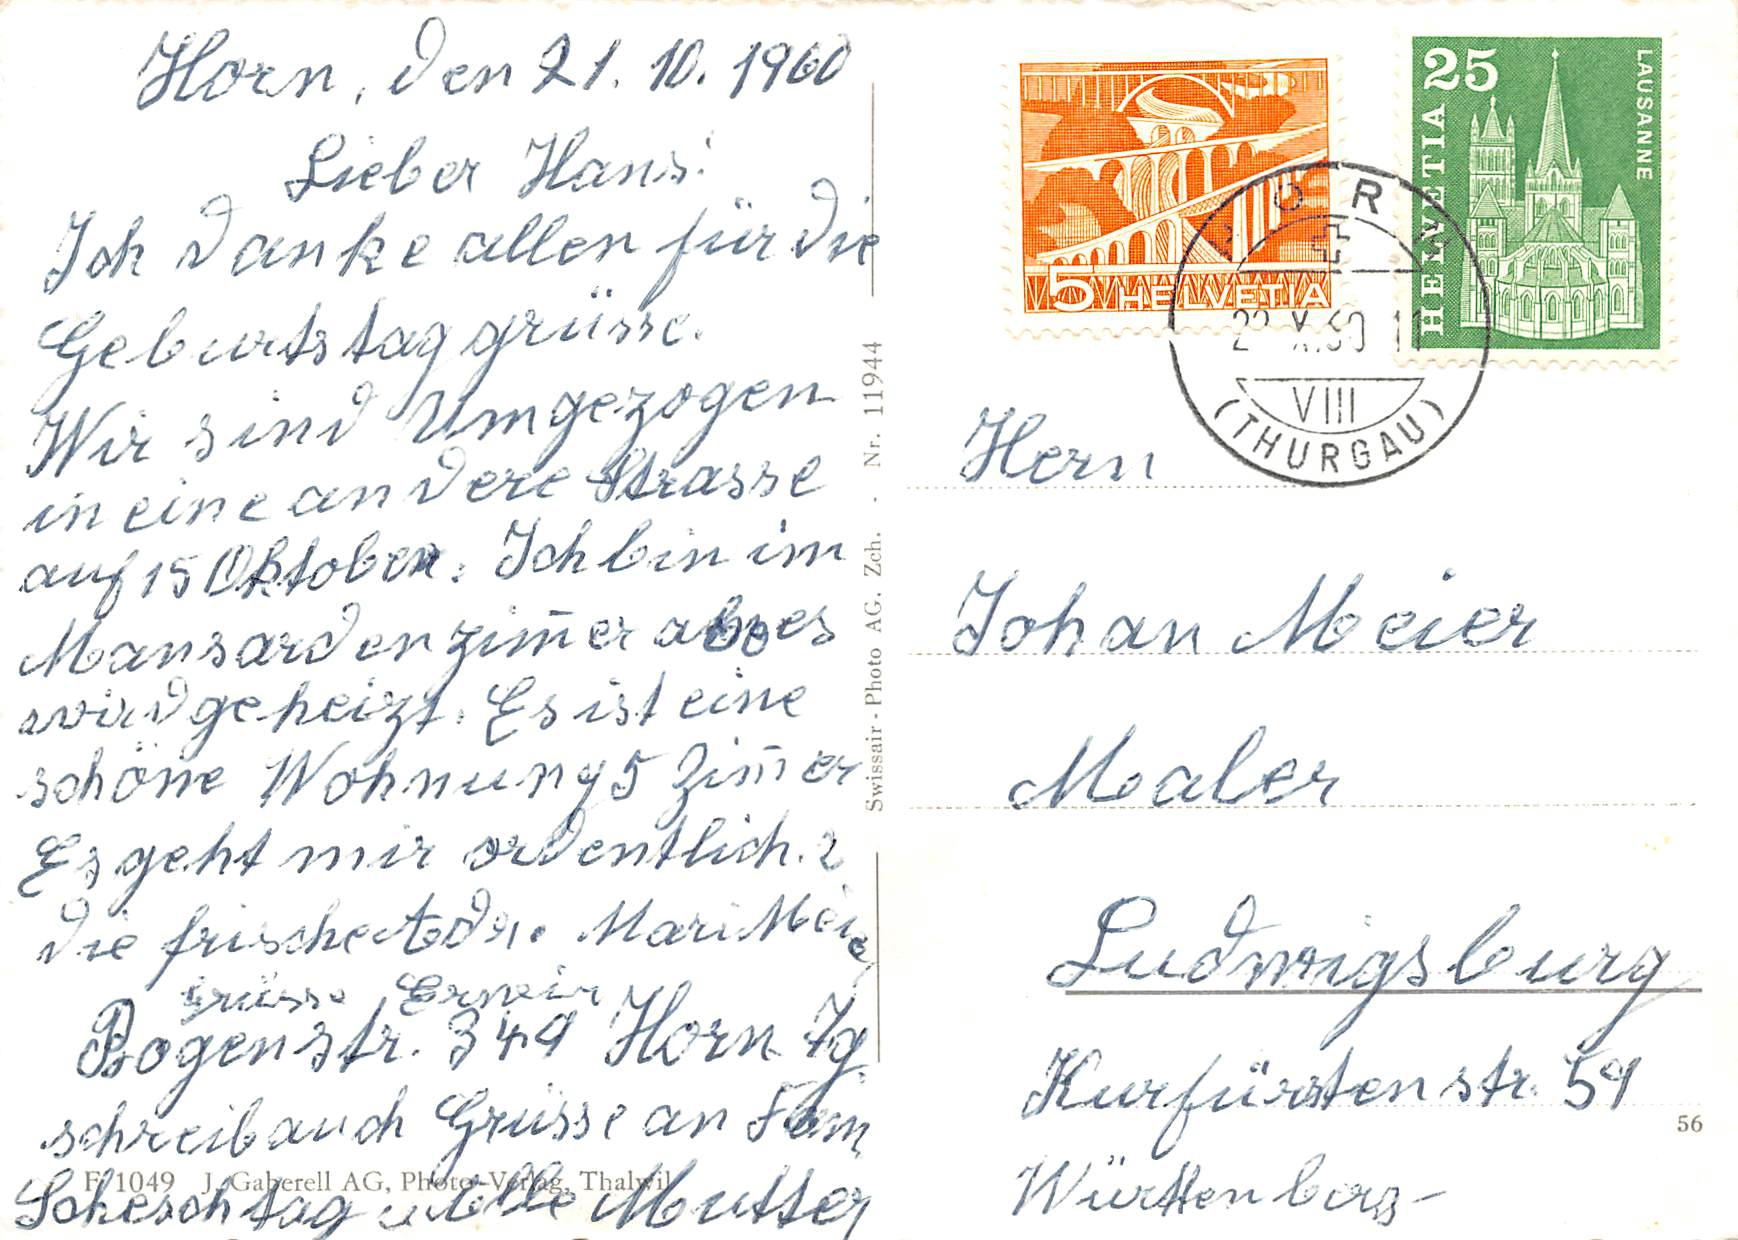 Horn, den 21. 10. 1960
Lieber Hans!
Ich danke allen für die
Geburtstaggrüsse.
Wir sind Umgezogen
in eine andere Strasse
auf 15 Oktober. Ich bin im
Mansardenzim̄er aber es
wird geheizt. Es ist eine
schöne Wohnung 5 Zim̄er
Es geht mir ordentlich.
die frische Mari Meier
Grüsse
Bogenstr. 349 Horn Tg
schreib auch Grüsse an Fam
Mutter
F 1049 J. Gaberell AG, Photo-Verlag, Thalwil
Swissair-Photo AG. Zch. · Nr. 11944
5 HELVETIA
25
HELVETIA
LAUSANNE
HORN
22.X.60 11
VIII
(THURGAU)
Hern
Johan Meier
Maler
Ludwigsburg
Kurfürstenstr. 59
Württenberg
56